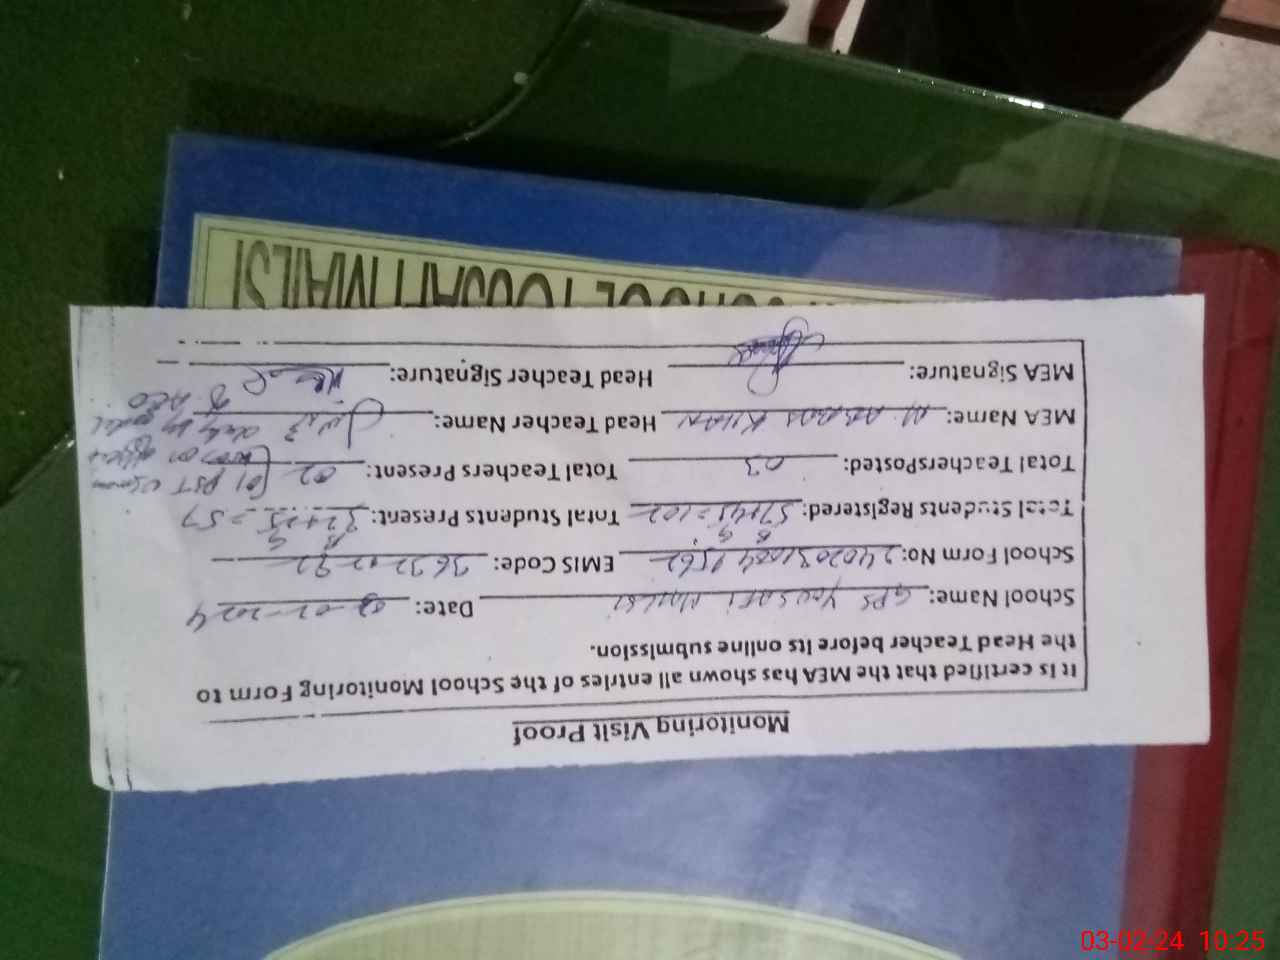 Monitoring Visit Proof
It is certified that the MEA has shown all entries of the School Monitoring Form to
the Head Teacher before its online submission.
School Name: GPS YOUSAFI MAILSI Date: 03-02-2024
School Form No: EMIS Code:
B G B G
Total Students Registered: 57+45=102 Total Students Present: 32+25=57
Total TeachersPosted: 03 Total Teachers Present: 02 (01 PST
MEA Name: M. ABBAS KHAN Head Teacher Name:
MEA Signature: Head Teacher Signature:
SCHOOL YOUSAFI MAILSI
03-02-24 10:25